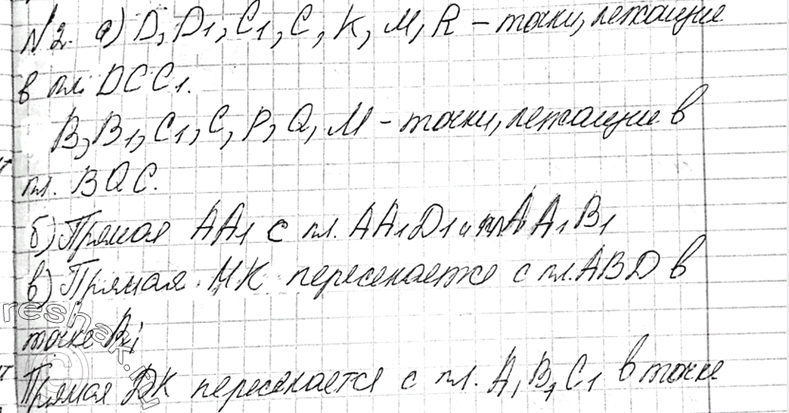 №2. а) D, D1, C1, C, K, M, R – точки, лежащие
в пл. DCC1.
B, B1, C1, C, P, Q, M – точки, лежащие в
пл. BQC.
б) Прямая AA1 с пл. AA1D1 и пл. AA1B1
в) Прямая MK пересекается с пл. ABD в
точке R;
Прямая DK пересекается с пл. A1B1C1 в точке
reshak.ru